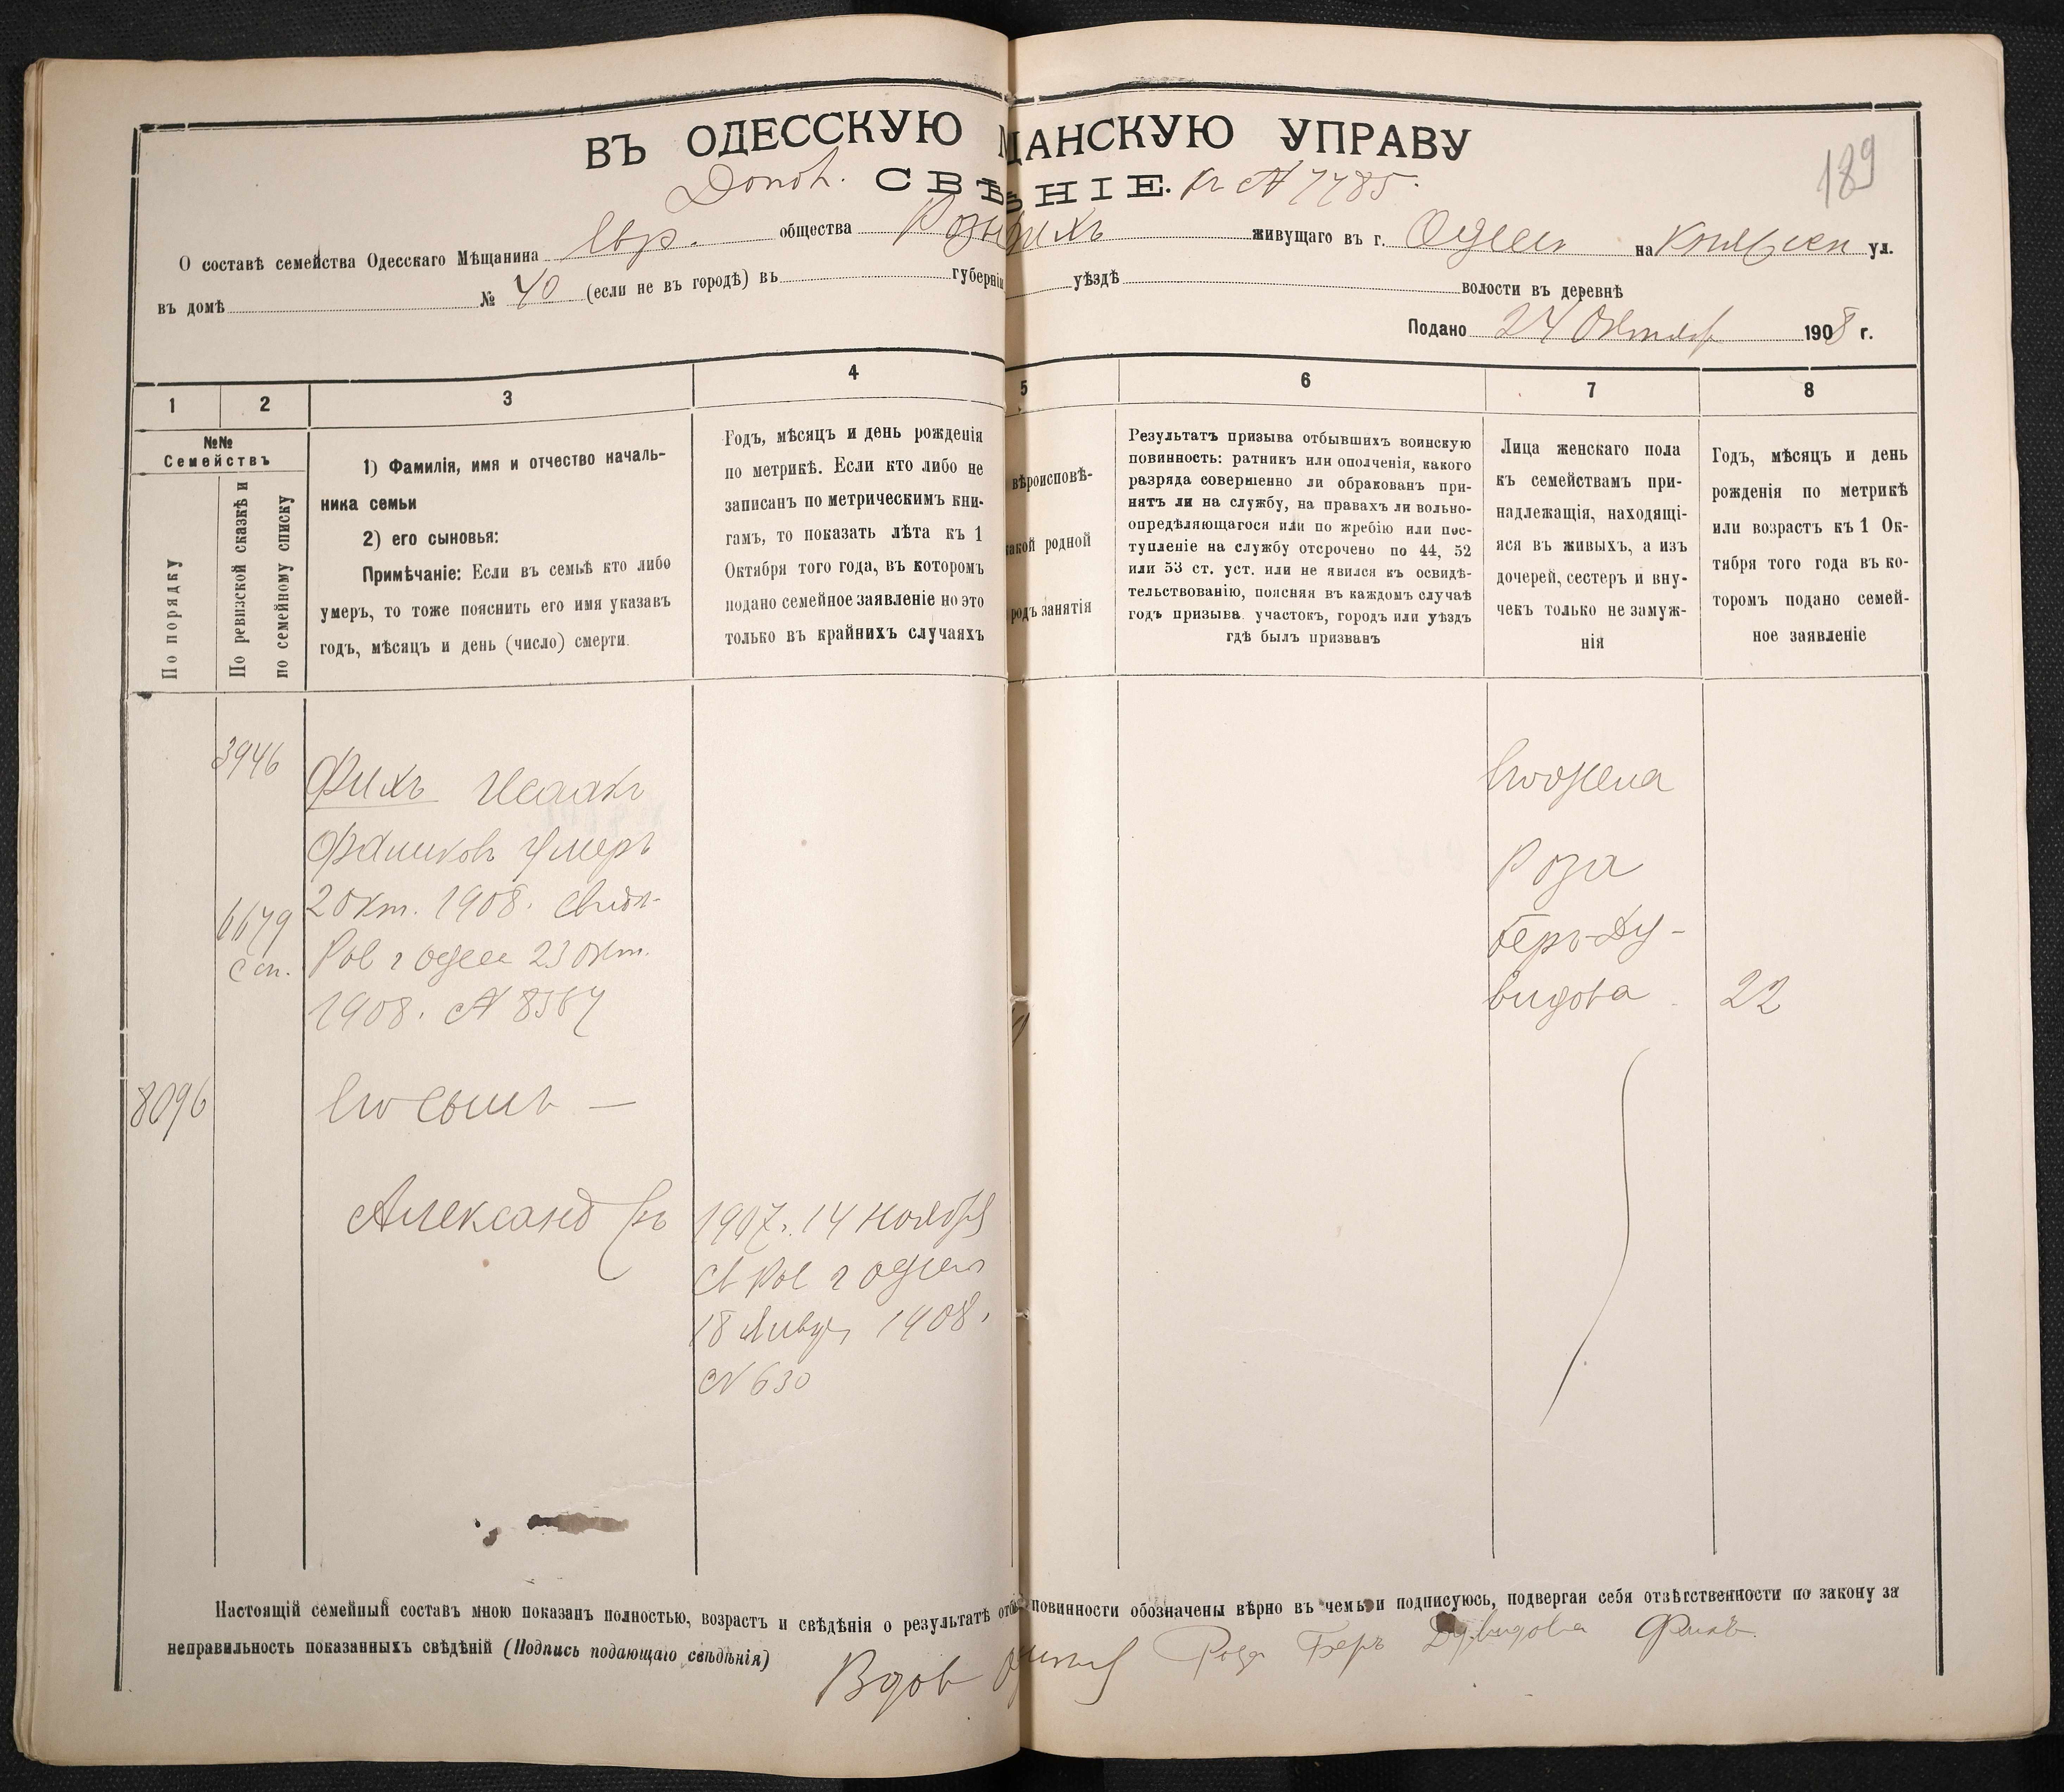 ВЪ ОДЕССКУЮ ЩАНСКУЮ УПРАВУ
189
СВѢ НІЕ. къ № 7785.
О составѣ семейства Одесскаго Мѣщанина Евр. общества живущаго въ г. Одессѣ на ул.
въ домѣ № 40 (если не въ городѣ) въ губерніи уѣздѣ волости въ деревнѣ
Подано 24 Октября 1908 г.
1 2 3 4 5 6 7 8
№№
Семействъ
По порядку
По ревизской сказкѣ и
по семейному списку
1) Фамилія, имя и отчество началь-
ника семьи
2) его сыновья:
Примѣчаніе: Если въ семьѣ кто либо
умеръ, то тоже пояснить его имя указавъ
годъ, мѣсяцъ и день (число) смерти.
Годъ, мѣсяцъ и день рожденія
по метрикѣ. Если кто либо не
записанъ по метрическимъ кни-
гамъ, то показать лѣта къ 1
Октября того года, въ которомъ
подано семейное заявленіе но это
только въ крайнихъ случаяхъ
вѣроисповѣ-
какой родной
родъ занятія
Результатъ призыва отбывшихъ воинскую
повинность: ратникъ или ополченія, какого
разряда совершенно ли обракованъ при-
нятъ ли на службу, на правахъ ли вольно-
опредѣляющагося или по жребію или пос-
тупленіе на службу отсрочено по 44, 52
или 53 ст. уст. или не явился къ освидѣ-
тельствованію, поясняя въ каждомъ случаѣ
годъ призыва участокъ, городъ или уѣздъ
гдѣ былъ призванъ
Лица женскаго пола
къ семействамъ при-
надлежащія, находящі-
яся въ живыхъ, а изъ
дочерей, сестеръ и вну-
чекъ только не замуж-
нія
Годъ, мѣсяцъ и день
рожденія по метрикѣ
или возрастъ къ 1 Ок-
тября того года въ ко-
торомъ подано семей-
ное заявленіе
3946
Фихъ Исаакъ
умеръ
2 Окт. 1908.
6679
с сп.
Рав г Одес 23 Окт.
1908. №
8096
Его Сынъ —
Александръ
1907. 14 Ноября
Рав г Одессы
18 Январ 1908.
№ 630
Его жена
Роза
Беръ-Ду-
видова
22
Настоящій семейный составъ мною показанъ полностью, возрастъ и свѣдѣнія о результатѣ отбы повинности обозначены вѣрно въ чемъ и подписуюсь, подвергая себя отвѣтственности по закону за
неправильность показанныхъ свѣдѣній (Подпись подающаго свѣдѣнія)
Вдова Роза Беръ Дувидова Фихъ